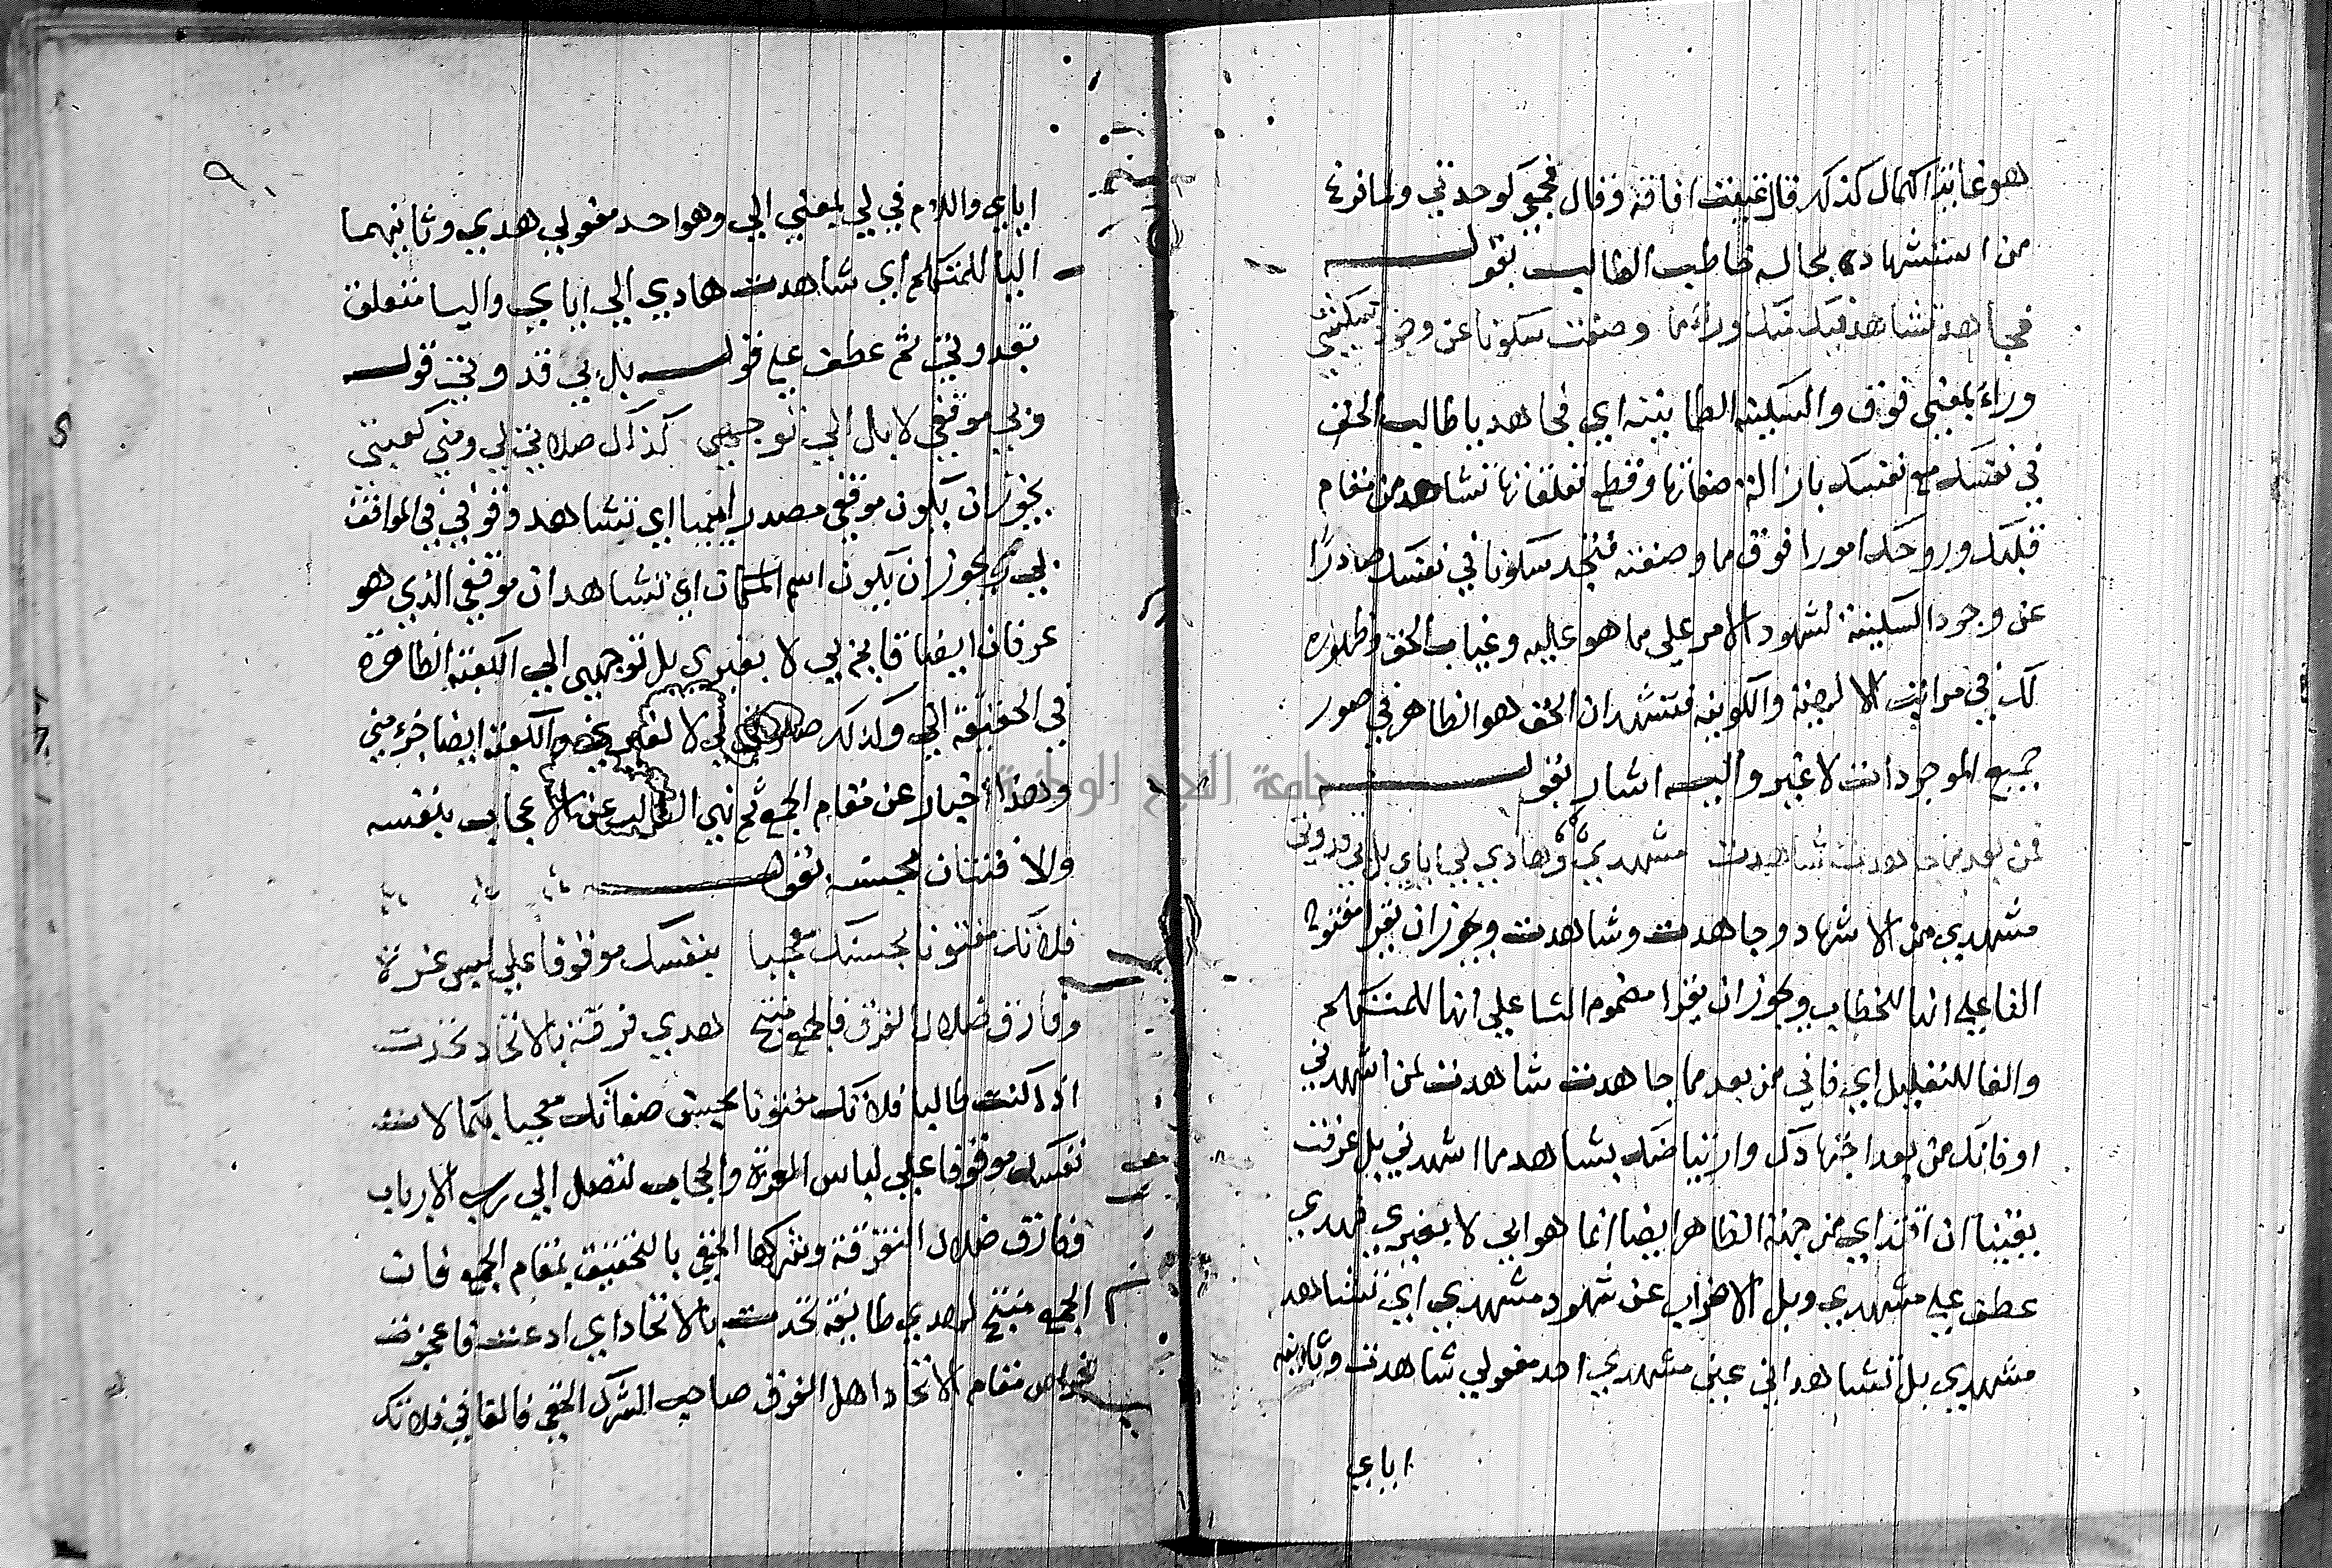 هو غاية الكمال كذلك قال غيبت افاقة وقال فجمعي كوحدتي ولما فرغ
من استشهاده بحاله خاطب الطالب بقوله
فجاهد تشاهد فيك منك وراء ما وصفت سكونا عن وجود سكينتي
وراء بمعني فوق والسكينة الطمانينة اي فجاهد يا طالب الحق
في نفسك مع نفسك بازالة صفاتها وقطع تعلقاتها تشاهد من مقام
قلبك وروحك امورا فوق ما وصفته فتجد سكونا في نفسك صادرا
عن وجود السكينة لشهود الامر علي ما هو عليه وغياب الحق وظهوره
لك في مرايي الالهية والكونية فتشهد ان الحق هو الظاهر في صور
جميع الموجودات لا غير واليه اشار بقوله
فمن بعد ما جاهدت شاهدت مشهدي وهادي لي اياي بل بي قدوتي
مشهدي من الاشهاد وجاهدت وشاهدت ويجوز ان يقرا مفتوح
التا علي انها للخطاب ويجوز ان يقرا مضموم التا علي انها للمتكلم
والفا للتعليل اي فاني من بعد ما جاهدت شاهدت لمن اشهدني
او فانك من بعد اجتهادك وارتياضك تشاهد ما اشهدني بل عرفت
يقينا ان اقتداي من جهة الظاهر ايضا انما هو ابي لا بغيري فهدي
عطف علي مشهدي وبل الاضراب عن شهود مشهدي اي تشاهد
مشهدي بل تشاهد اني عين مشهدي احد مفعولي شاهدت وثانيه
اياي
٩
اياي واللام في لي بمعني الي وهو احد مفعولي هدي وثانيهما
اليا للمتكلم اي شاهدت هادي الي اياي واليا متعلق
بقدوتي ثم عطف علي قوله بل بي قدوتي قوله
وبي موقفي لا بل الي توجهي كذاك صلاتي لي ومني كعبتي
يجوز ان يكون موقفي مصدرا ميميا اي تشاهد وقوفي في المواقف
بي ويجوز ان يكون اسم المكان اي تشاهد ان موقفي الذي هو
عرفان ايضا قايم بي لا بغيري بل توجهي الي الكعبة الظاهرة
في الحقيقة الي وكذلك صلاتي لي لا لغيري والكعبة ايضا جزء مني
وهذا اخبار عن مقام الجمع ثم نهي الطالب عن الاعجاب بنفسه
والافتتان بحسنه بقوله
فلا تك مفتونا بحسنك معجبا بنفسك موقوفا علي لبس غرة
وفارق ضلال الفرق فالجمع منتج هدي فرقة بالاتحاد تحدت
اذا كنت طالبا فلا تك مفتونا بحسن صفاتك معجبا بكمالات
نفسك موقوفا علي لباس الغرة والحجاب لتصل الي رب الارباب
ففارق ضلال التفرقة وشركها الخفي بالتحقيق بمقام الجمع فان
الجمع منتج لهدي طايفة تحدت بالاتحاد اي ادعت فاعجزت
بخواص مقام الاتحاد اهل الفرق صاحب الشرك الخفي فالفا في فلا تك